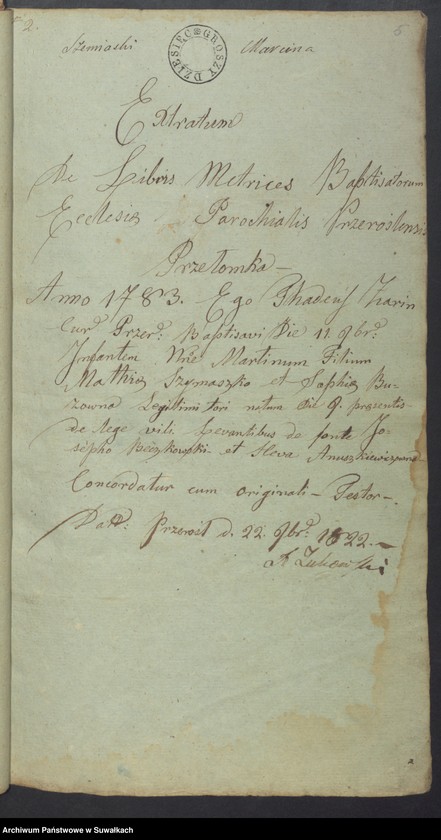 2.
6
Szemiaski Marcina
DZIESIĘC GROSZY
Extratum
De Libris Metrices Baptisatorum
Ecclesiæ Parochialis Przeroslensis
Przełomka –
Anno 1783. Ego Thadeus Zarin
Cur: Przer: Baptisavi Die 11. 9br:
Infantem Nõe Martinum Filium
Mathiæ Szymaszko et Sophiæ Bu-
zowna Legittimi tori natum Die 9 præsentis –
de lege vili. Levantibus de fonte Jo-
sepho Beczkowski et Heva Anuszkiewiczowna
Concordatur cum originali – Testor –.
Datt: Przerosl d. 22. 9br: 1822. –
Żukowski
Archiwum Państwowe w Suwałkach